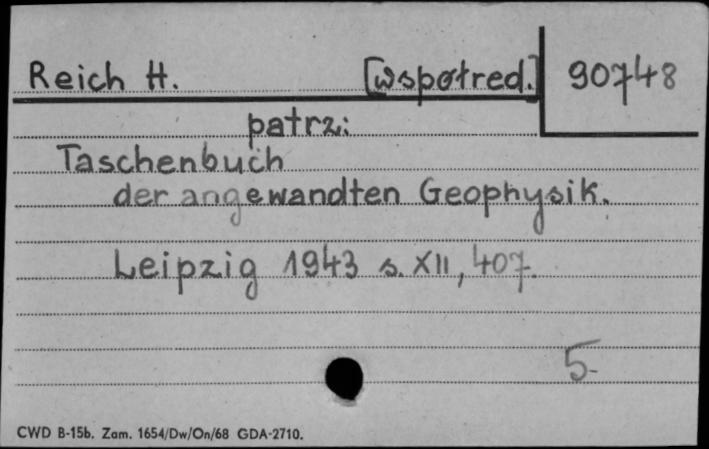 Reich H. [współred.] 90748
patrz:
Taschenbuch
der angewandten Geophysik.
Leipzig 1943 s. XII, 407.
5-
CWD B-15b. Zam. 1654/Dw/On/68 GDA-2710.